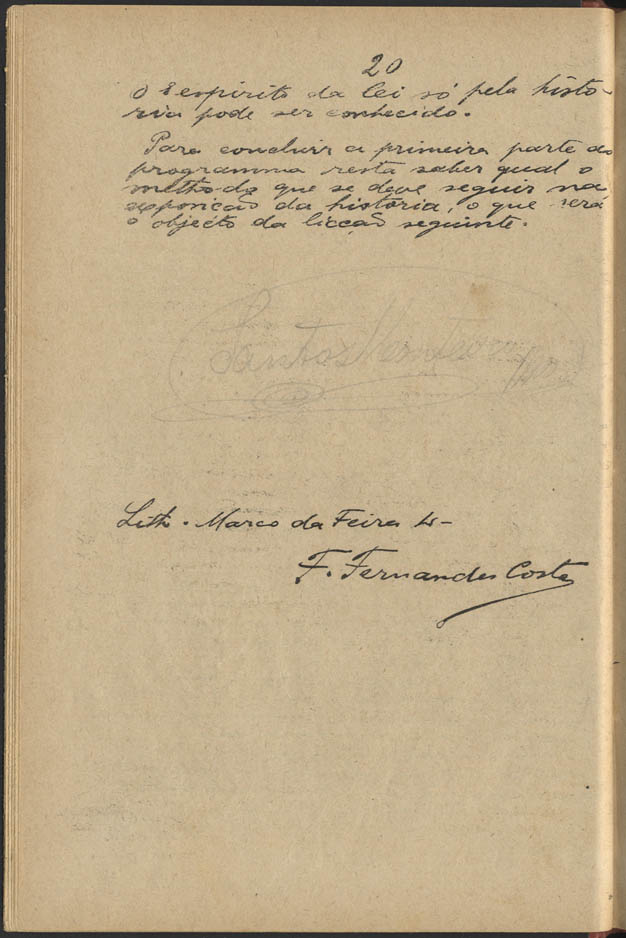 20
O espirito da lei só pela histo-
ria pode ser conhecido.
Para concluir a primeira parte do
programma resta saber qual o
methodo que se deve seguir na
exposição da historia, o que será
o objecto da licção seguinte.
Santos Monteiro
Lith. Marco da Feira
F. Fernandes Costa